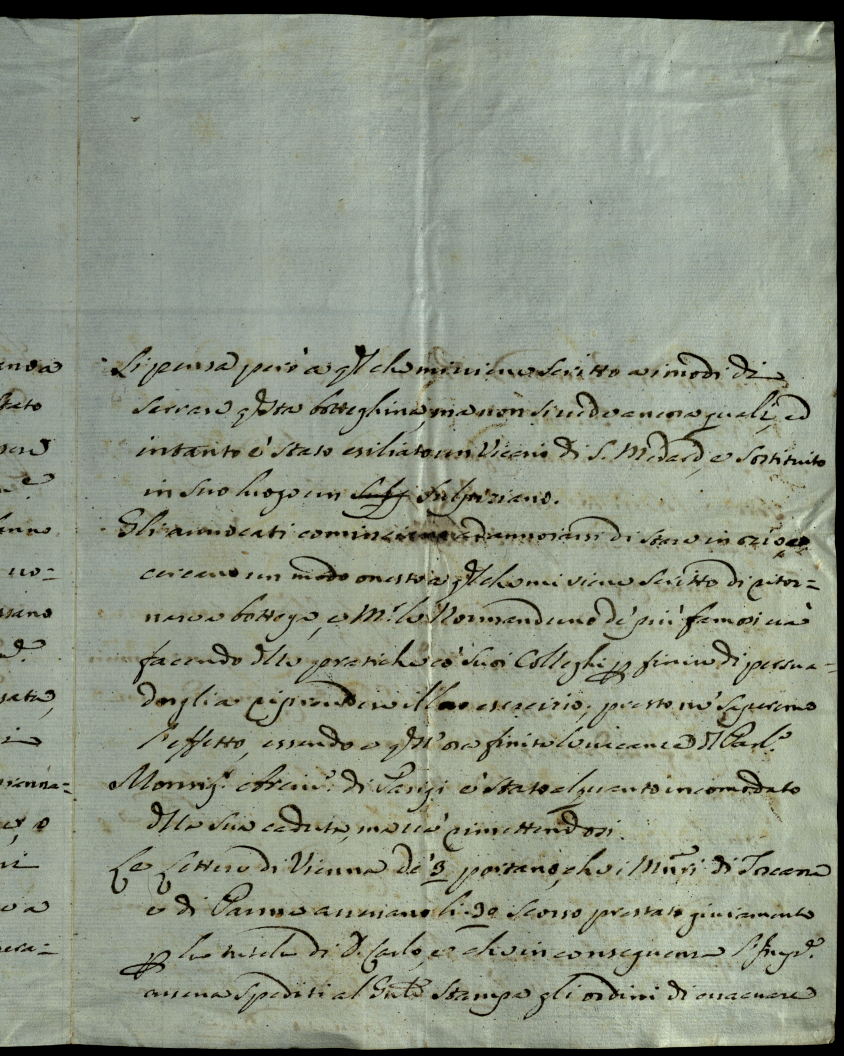 Si pensa però a q.l che mi viene scritto a i modi di
serrare q.sta botteghina, ma non si vede ancora quali, ed
intanto è stato esiliato un Vicario di S. Medard, e sostituito
in suo luogo un Sulpiziano.
Gli avvocati cominciano ad annoiarsi di stare in ozio, e
cercano un modo onesto a q.l che mi viene scritto di ritor=
nare a bottega, e M.r le Normand uno de' più famosi và
facendo delle pratiche co' suoi Colleghi p finire di persua=
dergli a riprendere il loro esercizio; presto ne saperemo
l'effetto, essendo a q.st'ora finite le vacanze del Parl.o
Monsig.r Arciv.o di Parigi è stato alquanto incomodato
della sua caduta, ma và rimettendosi.
Le Lettere di Vienna de' 3 portano, che i Mñri di Toscana
e di Parma avevano li 30 scorso prestato giuramento
p la tutela di D. Carlo, e che in conseguenza l'Imp.re
aveva spediti al Gñle Stampa gli ordini di evacuare
ato
=